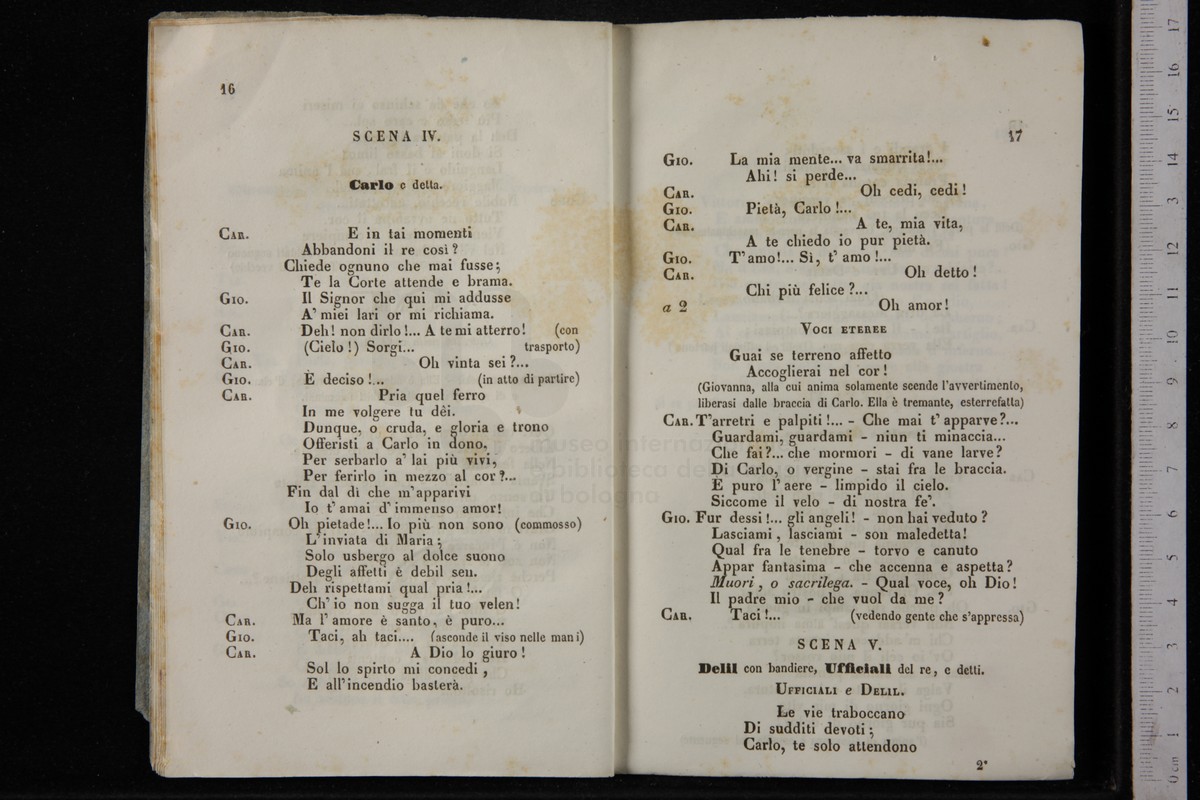 16
SCENA IV.
Carlo e detta.
CAR. E in tai momenti
Abbandoni il re così?
Chiede ognuno che mai fusse;
Te la Corte attende e brama.
GIO. Il Signor che qui mi addusse
A' miei lari or mi richiama.
CAR. Deh! non dirlo!... A te mi atterro! (con
GIO. (Cielo!) Sorgi... trasporto)
CAR. Oh vinta sei?...
GIO. È deciso!... (in atto di partire)
CAR. Pria quel ferro
In me volgere tu dêi.
Dunque, o cruda, e gloria e trono
Offeristi a Carlo in dono,
Per serbarlo a' lai più vivi,
Per ferirlo in mezzo al cor?...
Fin dal dì che m'apparivi
Io t'amai d'immenso amor!
GIO. Oh pietade!... Io più non sono (commosso)
L'inviata di Maria;
Solo usbergo al dolce suono
Degli affetti è debil sen.
Deh rispettami qual pria!...
Ch'io non sugga il tuo velen!
CAR. Ma l'amore è santo, è puro...
GIO. Taci, ah taci.... (asconde il viso nelle mani)
CAR. A Dio lo giuro!
Sol lo spirto mi concedi,
E all'incendio basterà.
17
GIO. La mia mente... va smarrita!...
Ahi! si perde...
CAR. Oh cedi, cedi!
GIO. Pietà, Carlo!...
CAR. A te, mia vita,
A te chiedo io pur pietà.
GIO. T'amo!... Sì, t'amo!...
CAR. Oh detto!
Chi più felice?...
a 2 Oh amor!
VOCI ETEREE
Guai se terreno affetto
Accoglierai nel cor!
(Giovanna, alla cui anima solamente scende l'avvertimento,
liberasi dalle braccia di Carlo. Ella è tremante, esterrefatta)
CAR. T'arretri e palpiti!... - Che mai t'apparve?...
Guardami, guardami - niun ti minaccia...
Che fai?... che mormori - di vane larve?
Di Carlo, o vergine - stai fra le braccia.
E puro l'aere - limpido il cielo.
Siccome il velo - di nostra fe'.
GIO. Fur dessi!... gli angeli! - non hai veduto?
Lasciami, lasciami - son maledetta!
Qual fra le tenebre - torvo e canuto
Appar fantasima - che accenna e aspetta?
Muori, o sacrilega. - Qual voce, oh Dio!
Il padre mio - che vuol da me?
CAR. Taci!... (vedendo gente che s'appressa)
SCENA V.
Delil con bandiere, Ufficiali del re, e detti.
UFFICIALI e DELIL.
Le vie traboccano
Di sudditi devoti;
Carlo, te solo attendono
2*
museo internaz
biblioteca de
di bologna
0 cm 1 2 3 4 5 6 7 8 9 10 11 12 13 14 15 16 17